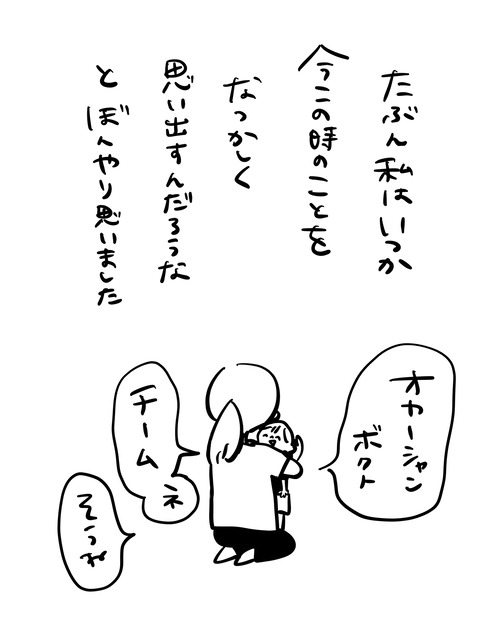 たぶん私はいつか
今この時のことを
なつかしく
思い出すんだろうな
とぼんやり思いました
オカーシャン
ボクト
チーム
ネ
そうね